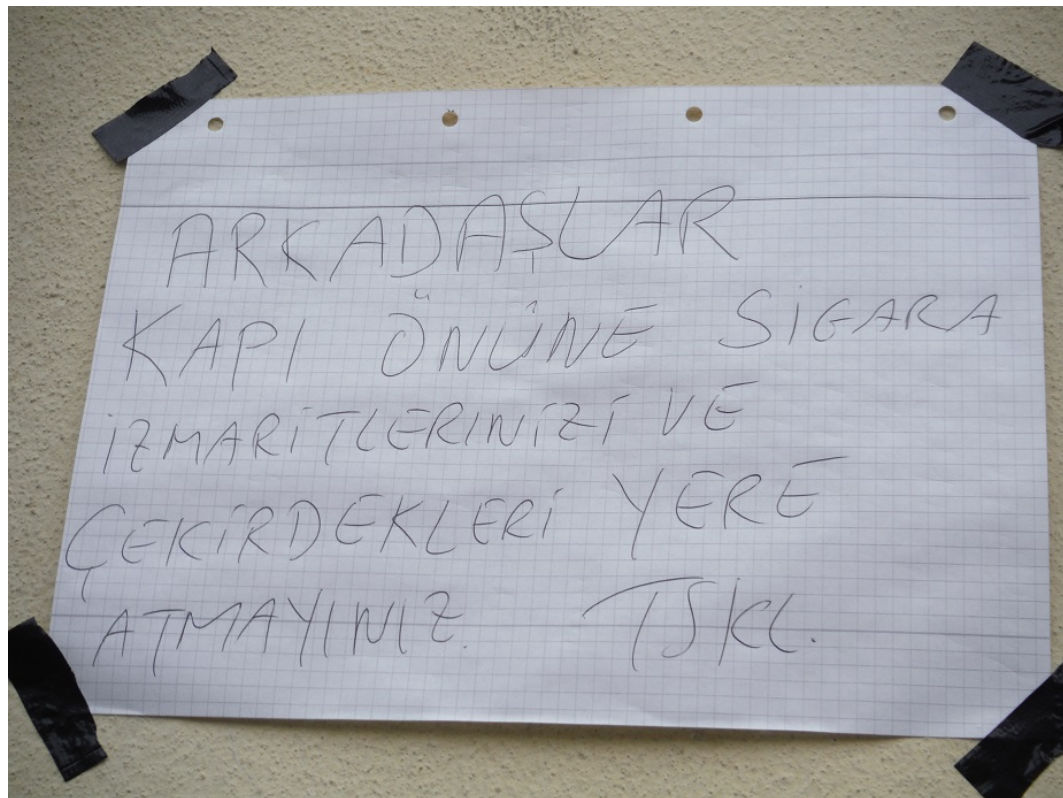 ARKADAŞLAR
KAPI ÖNÜNE SİGARA
İZMARİTLERINİZİ VE
ÇEKİRDEKLERİ YERE
ATMAYINIZ. TSKL.